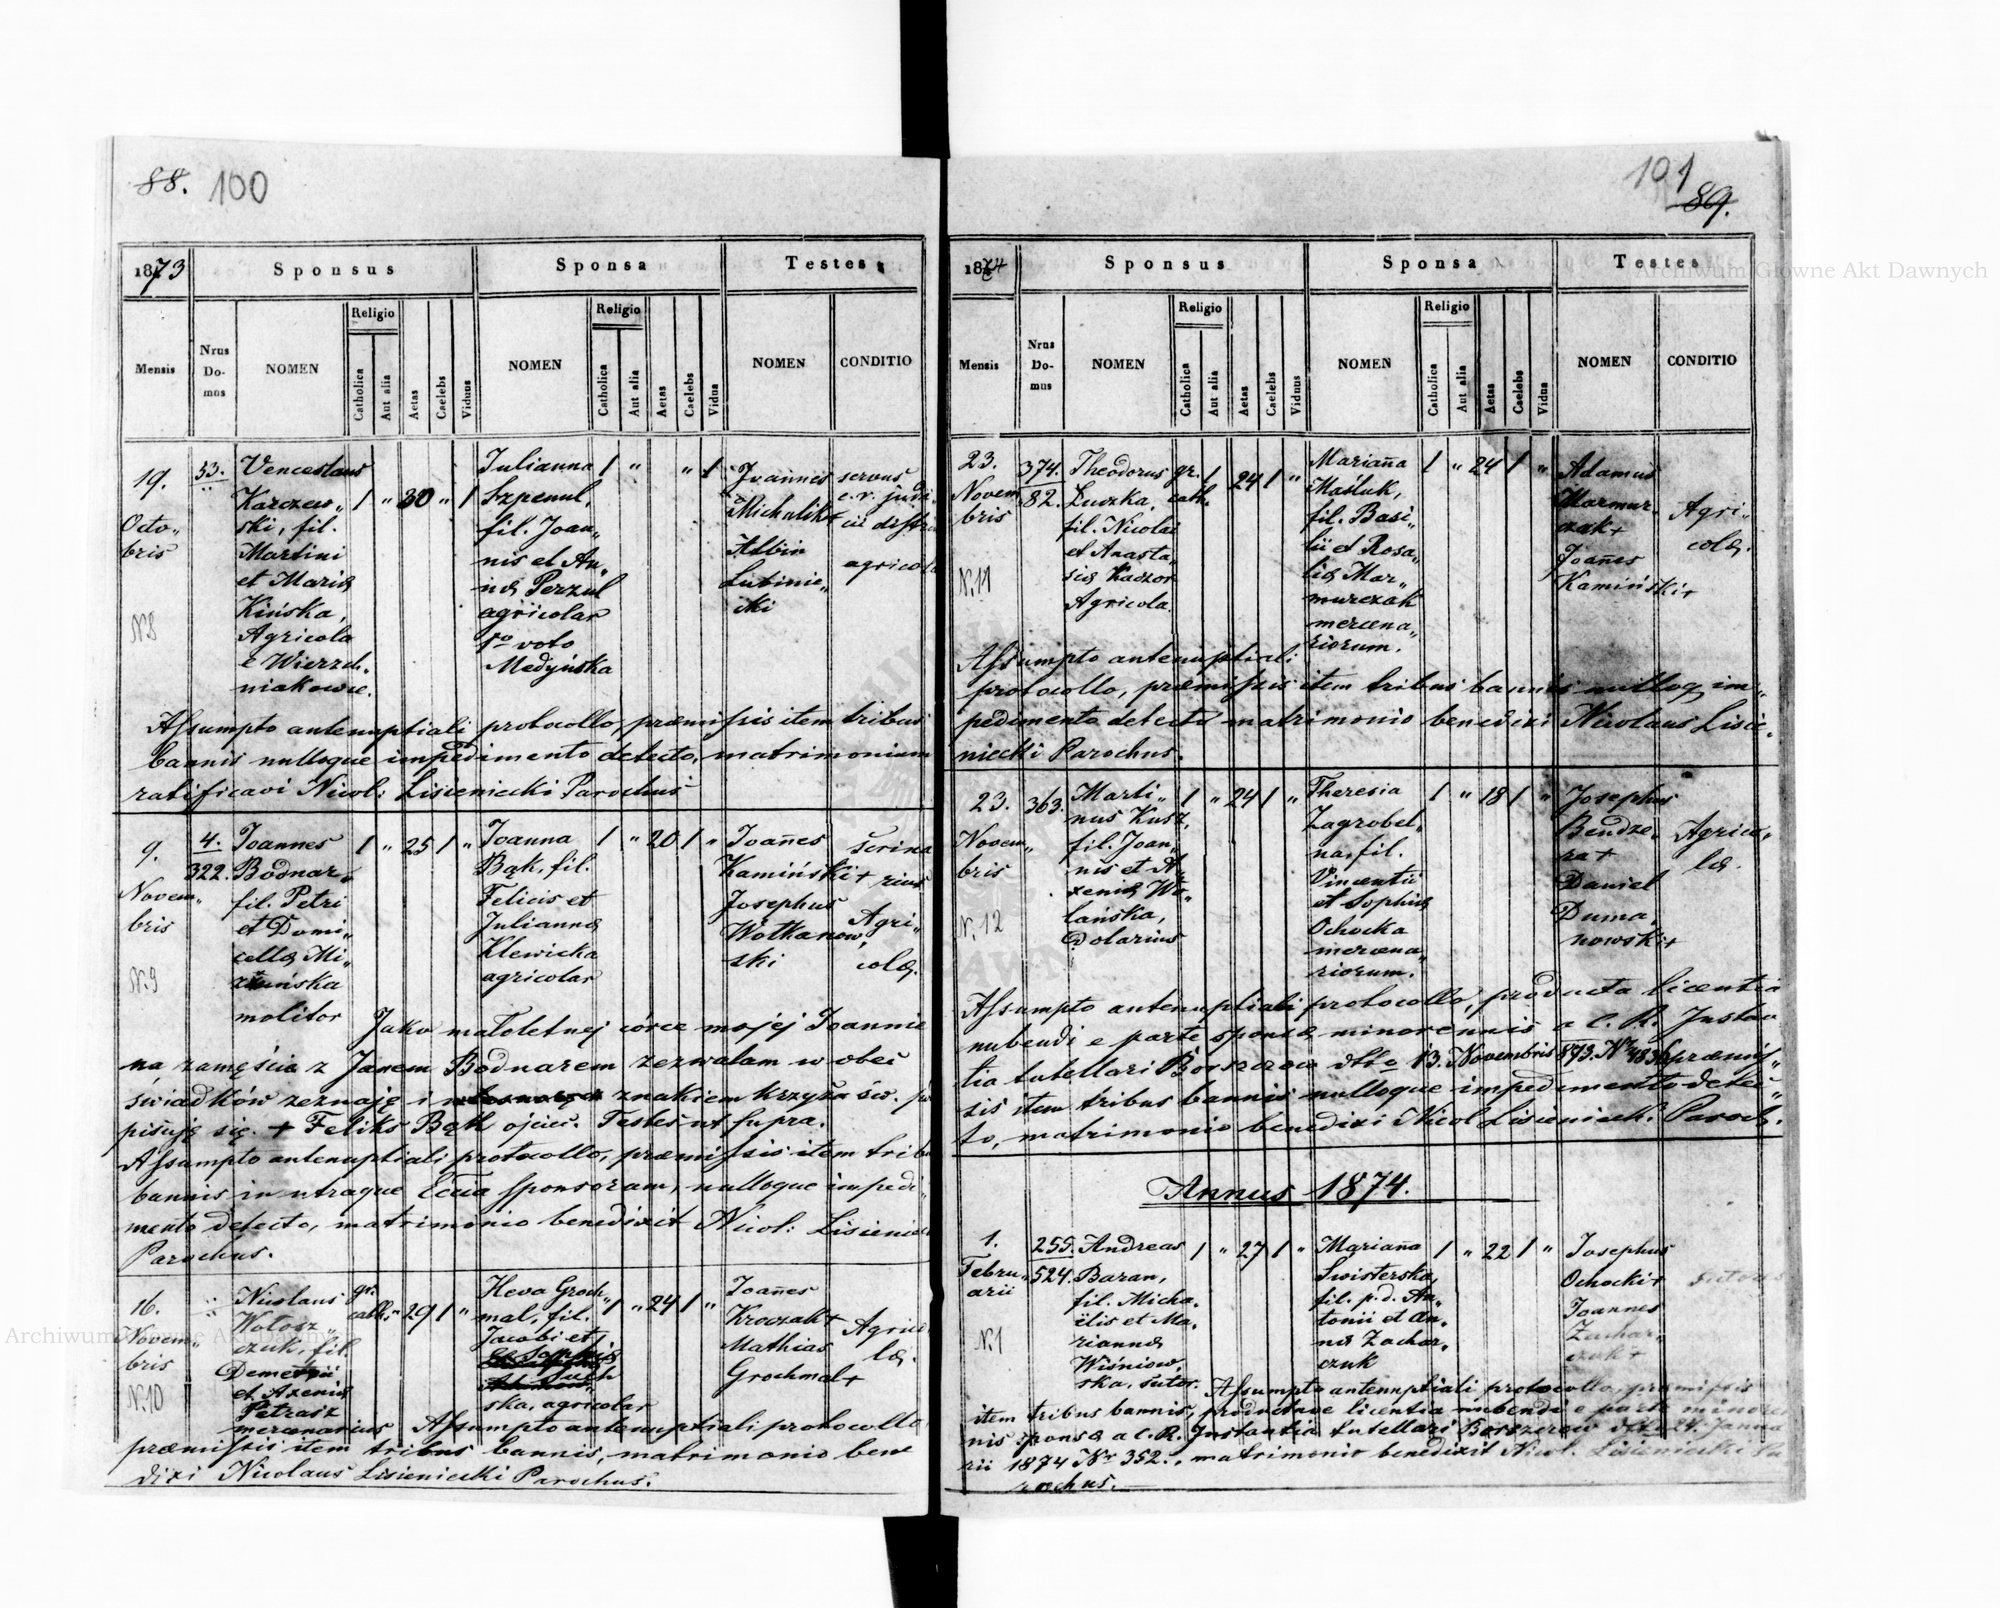 88. 100
1873
Sponsus
Sponsa
Testes
Mensis
Nrus Do- mus
NOMEN
Religio
Catholica
Aut alia
Aetas
Caelebs
Viduus
NOMEN
Religio
Catholica
Aut alia
Aetas
Caelebs
Vidua
NOMEN
CONDITIO
19.
Octo„
bris
N8
53.
Venceslaus
Karczew„
ski, fil.
Martini
et Mariæ
Kińska,
Agricola
e Wierzch„
niakowce.
1 „ 30 „ 1
Julianna
Szpenul,
fil. Joan„
nis et An„
næ Perzul
agricolar
1º voto
Medyńska
1 „ „ 1
Joannes
Michalik+
Albin
Lubinie„
cki
servus
c. r. judi
cii distri
agricola
Assumpto antenuptiali protocollo, præmissis item tribus
bannis nulloque impedimento detecto, matrimonium
ratificavi Nicol: Lisieniecki Parochus
9.
Novem„
bris
N.9
4.
322.
Joannes
Bodnar,
fil. Petri
et Domi„
cellæ Mi„
molitor
1 „ 25 1 „
Joanna
Bąk, fil.
Felicis et
Juliannæ
Klewicka
agricolar
1 „ 20 1 „
Joañes
Kamiński+
Josephus
Wołkanow„
ski
scrina
rius
Agri„
colæ.
Jako małoletnej córce mojej Joannie
na zamęście z Janem Bodnarem zezwalam w obec
świadków zeznaję i znakiem krzyża św. po
pisuję się. + Feliks Bąk ojciec. Testes ut supra.
Assumpto antenuptiali protocollo, præmissis item tribu
bannis in utraque Ecua sponsoram, nulloque impedi„
mento detecto, matrimonio benedixit Nicol: Lisienie
Parochus.
16.
Novem„
bris
N.10
Nicolaus
Wołosz„
czuk, fil.
Demetrii
et Axeniæ
Petrasz
mercenarius
gr. cath. „ 29 1 „
Heva Groch„
mal, fil.
Jacobi et
ska, agricolar
1 „ 24 1 „
Joañes
Kroczak+
Mathias
Grochmal+
Agrico„
læ.
Assumpto antenuptiali protocollo
præmissis item tribus bannis, matrimonio bene
dixi Nicolaus Lisieniecki Parochus.
101
89.
1874
Sponsus
Sponsa
Testes
Mensis
Nrus Do- mus
NOMEN
Religio
Catholica
Aut alia
Aetas
Caelebs
Viduus
NOMEN
Religio
Catholica
Aut alia
Aetas
Caelebs
Vidua
NOMEN
CONDITIO
23.
Novem
bris
N.11
374.
82.
Theodorus
Luczka,
fil. Nicolai
et Anasta„
siæ Kaczor
Agricola.
gr. cath. 1 24 1 „
Mariaña
Maśluk,
fil. Basi„
lii et Rosa„
liæ Mar„
murczak
mercena„
riorum.
1 „ 24 1 „
Adamus
Marmur„
czak+
Joañes
Kamiński+
Agri„
colæ.
Assumpto antenuptiali
protocollo, præmissis item tribus bannis nulloq im„
pedimento detecto matrimonio benedixi Nicolaus Lisie„
niecki Parochus.
23.
Novem„
bris
N. 12
363.
Marti„
nus Kusz,
fil. Joan„
nis et A„
xeniæ Wo„
lańska,
Dolarius
1 „ 24 1 „
Theresia
Zagrobel„
na, fil.
Vincentii
et Sophiæ
Ochocka
mercena„
riorum.
1 „ 18 1 „
Josephus
Bendze„
ra+
Daniel
Duma„
nowski+
Agrico„
læ.
Assumpto antenuptiali protocollo, producta licentia
nubendi e parte sponsæ minorennis a C. R. Instan
tia tutellari Borszczow dtto 13. Novembris 873. Nº 4836 præmis„
sis item tribus bannis nulloque impedimento detec„
to, matrimonio benedixi Nicol Lisienieck: Paroch.
Annus 1874.
1.
Febru„
arii
N.1
255.
524.
Andreas
Baran,
fil. Micha„
ëlis et Ma„
riannæ
Wiśniow„
ska, sutor.
1 „ 27 1 „
Mariaña
Swisterska,
fil. p.d. An„
tonii et An„
næ Zachar„
czuk
1 „ 22 1 „
Josephus
Ochocki+
Joannes
Zachar„
czuk+
sutores
Assumpto antenuptiali protocollo, præmissis
item tribus bannis, productaue licentia nubendi e parte minoren
nis sponsæ a C. R. Instantia tutellari Borszczow dtt 24. Janua
rii 1874 Nº 352., matrimonio benedixit Nicol. Lisieniecki Pa
rochus.
Archiwum Główne Akt Dawnych
Archiwum Główne Akt Dawnych